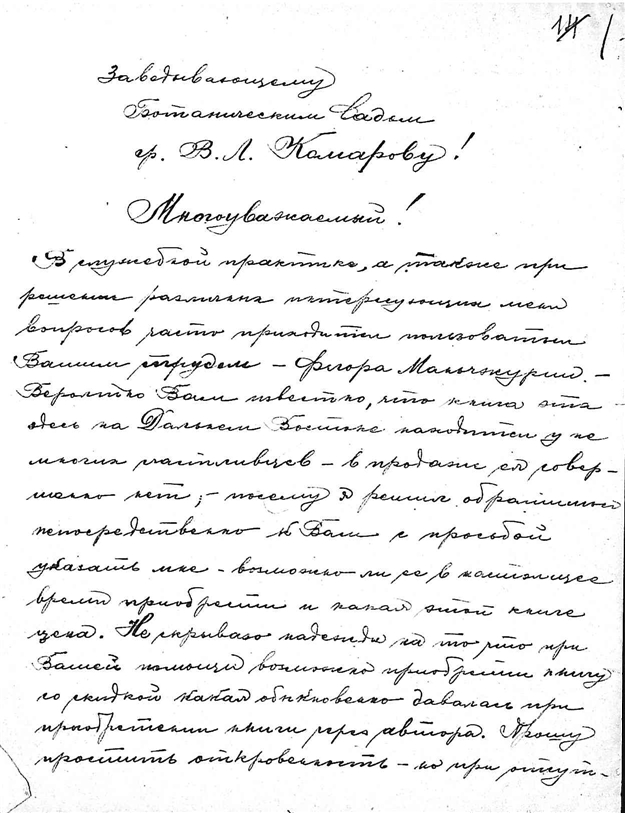 14 1
Заведывающему
Ботаническим Садом
гр. В. Л. Комарову!
Многоуважаемый!
В служебной практике, а также при
решении различных интересующих меня
вопросов часто приходится пользоваться
Вашим трудом – флора Маньчжурии. –
Вероятно Вам известно, что книга эта
здесь на Дальнем Востоке находится у не
многих счастливцев – в продаже ея совер-
шенно нет; – посему я решил обратиться
непосредственно к Вам с просьбой
указать мне – возможно ли ее в настоящее
время приобрести и какая этой книге
цена. Не скрываю надежды на то что при
Вашей помощи возможно приобрести книгу
со скидкой какая обыкновенно давалась при
приобретении книги через автора. Прошу
простить откровенность – но при отсут-